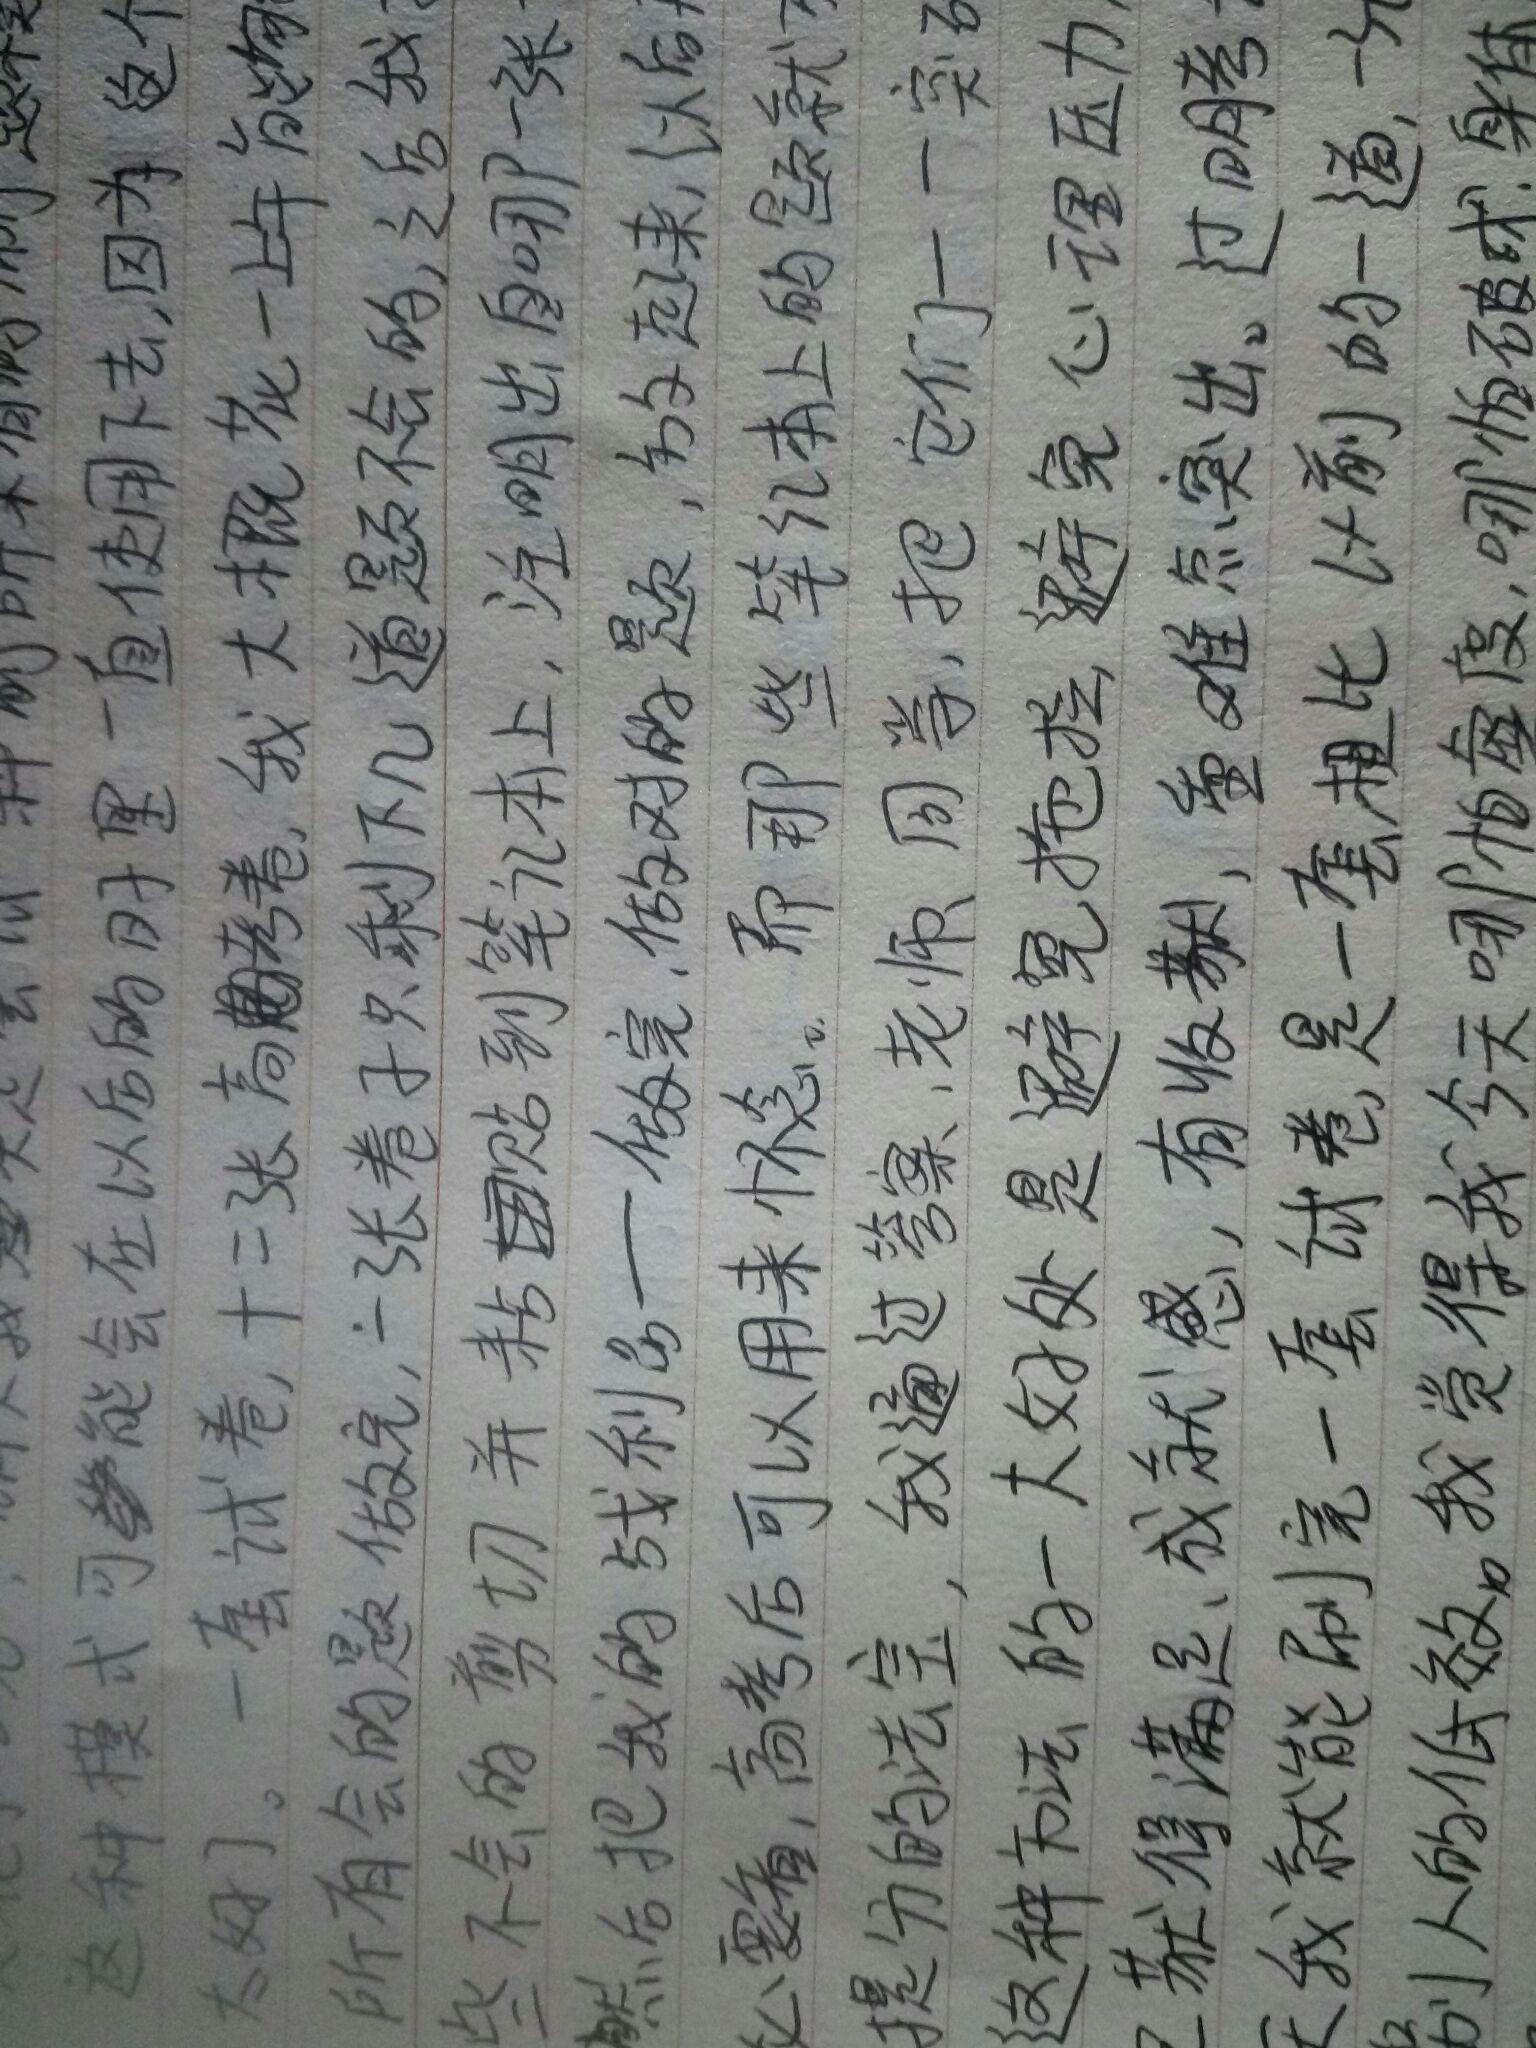 这种模式可能会在以后的日子里一直使用下去,因为这个
太好了。一套试卷,十二张高考卷,我大概花一上午能
所有会的题做完,一张卷子只剩下几道题不会的,之后我
些不会的剪切并粘贴到笔记本上,注明出自哪一张
然后把我的战利品一一做完、做对的题,
必要看,高考后可以用来怀念。而那些笔记本上的题就
提分的法宝,我通过答案、老师、同学,把它们一一突破
这种方法的一大好处是避免拖拉,避免心理压力,
获得满足、成就感,有收获,重难点突出。过两
天我就能刷完一套试卷,是一套试卷,是一套,相比以前的一道,一
别人的低效。我觉得我今天哪怕虚度,哪怕颓